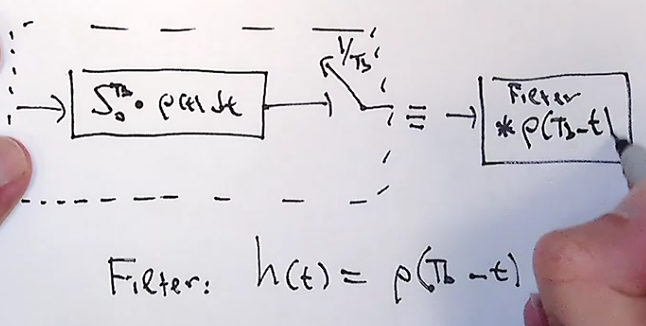 1/Tb
∫₀^Tb • p(t) dt
≡
Filter
* p(Tb-t)
Filter: h(t) = p(Tb-t)